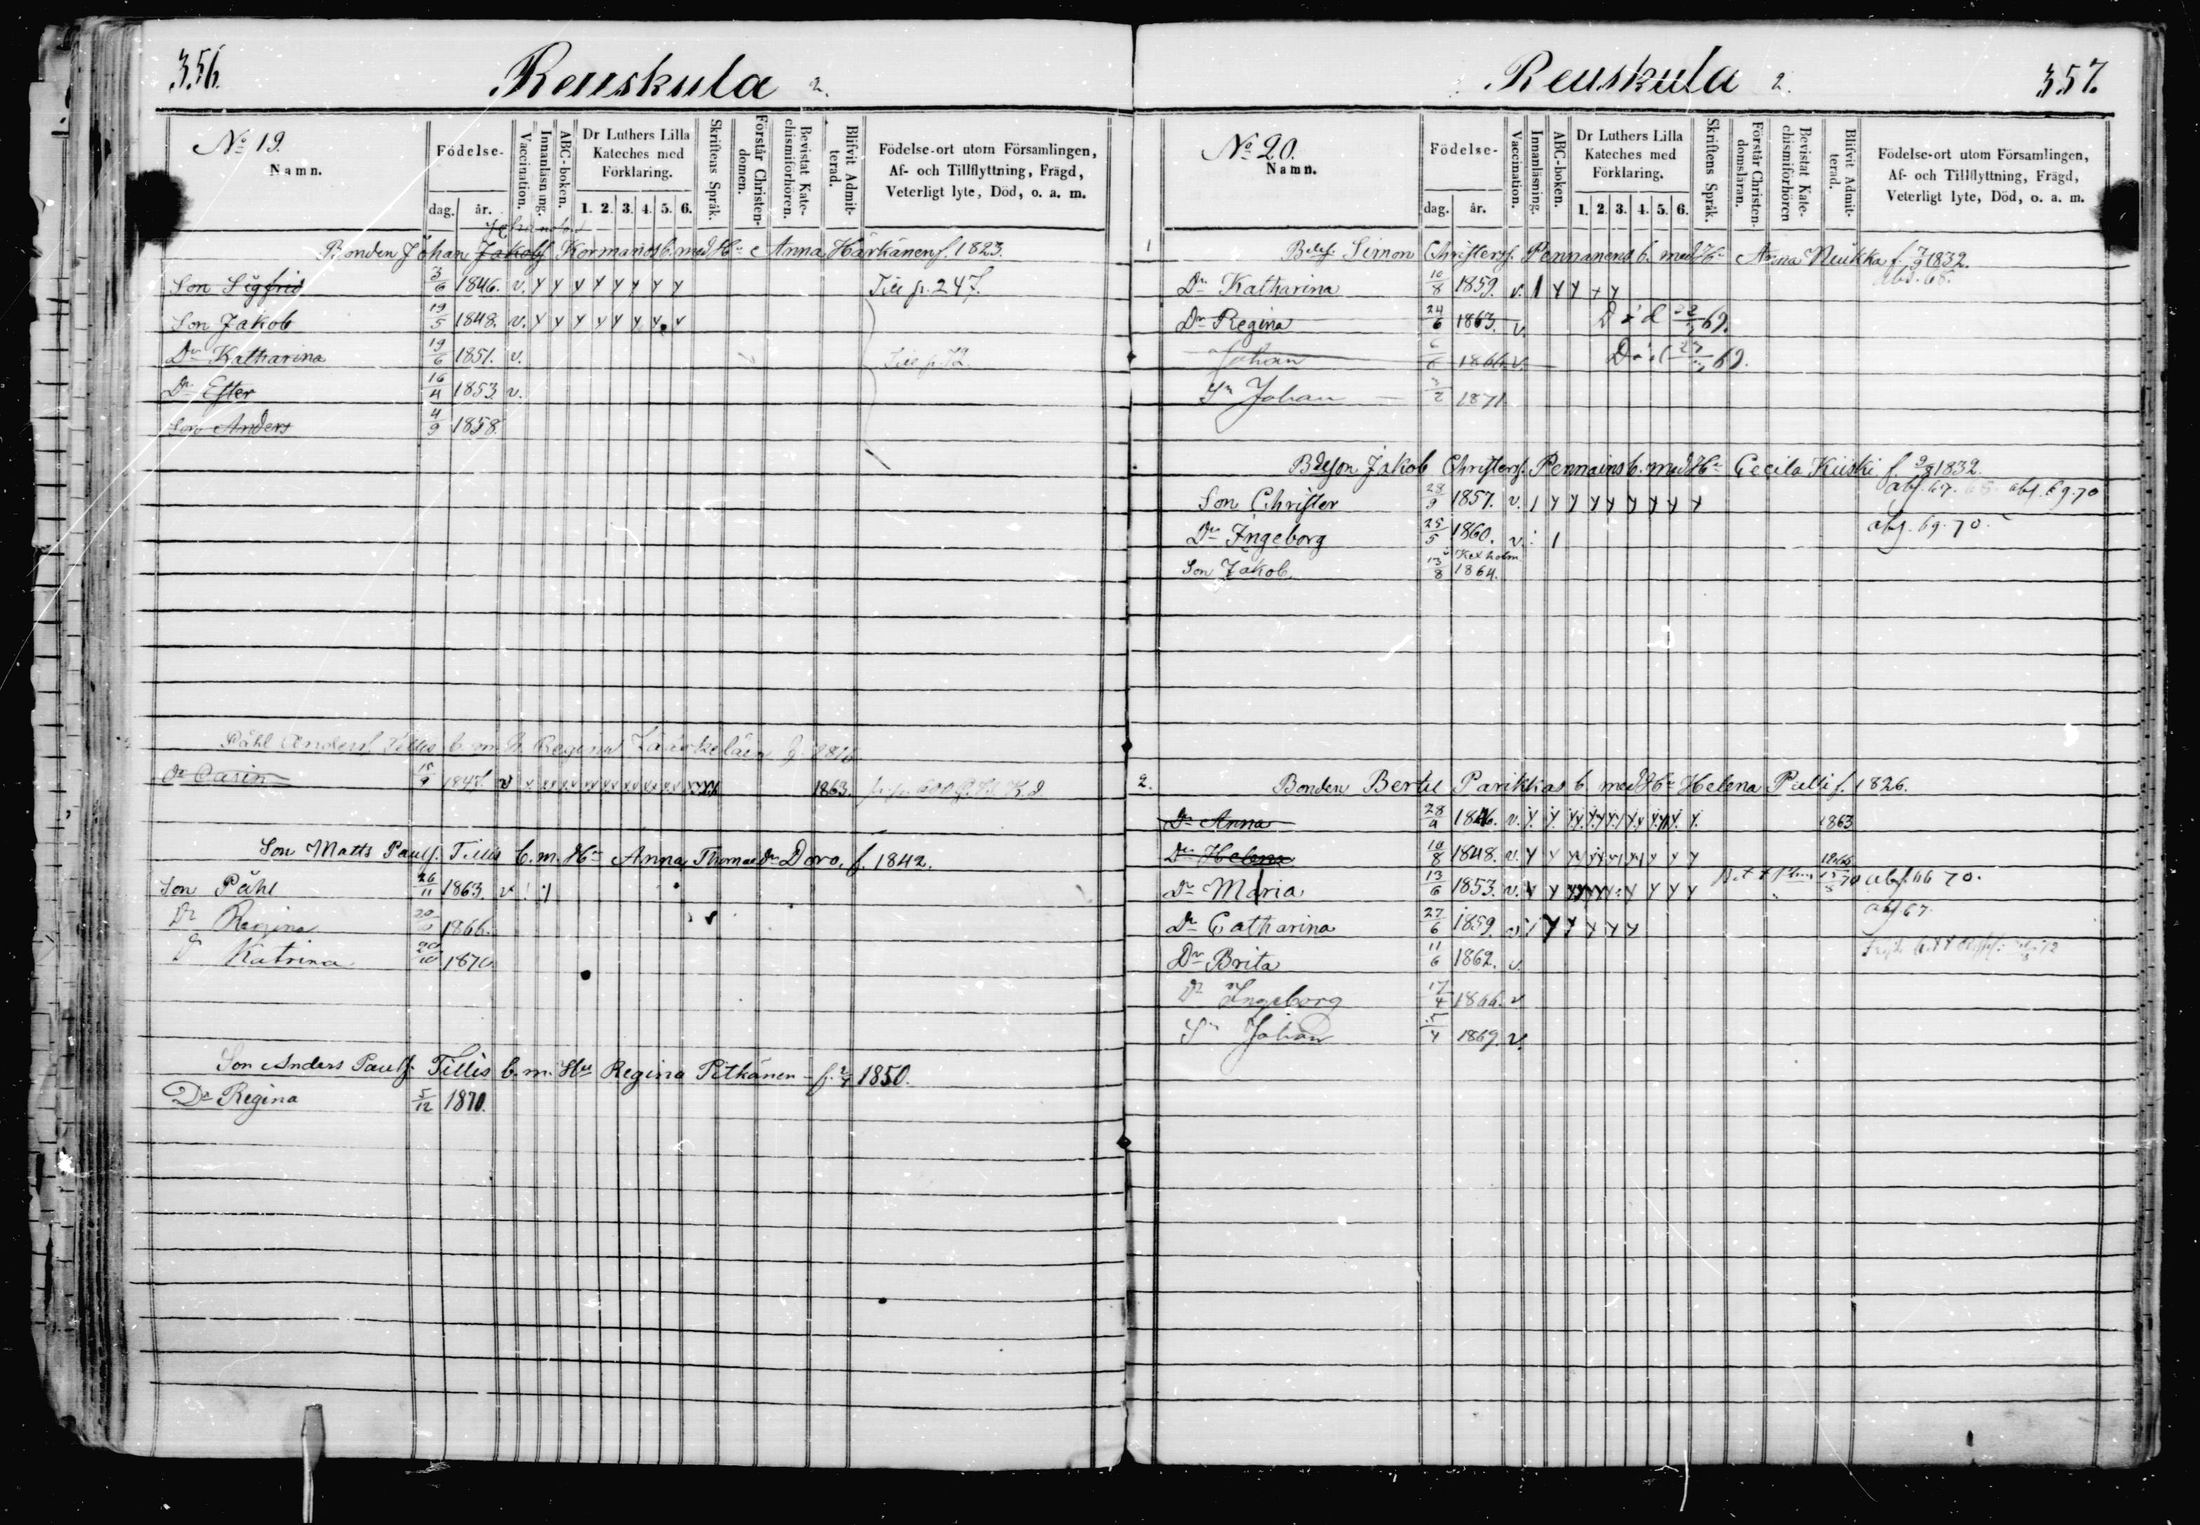 356.
Reuskula 2.
No 19.
Namn.
Födelse-
dag. år.
Vaccination.
Innanläsning.
ABC-boken.
Dr Luthers Lilla Kateches med Förklaring.
1. 2. 3. 4. 5. 6.
Skriftens Språk.
Förstår Christendomen.
Bevistat Katechismiförhören.
Blifvit Admitterad.
Födelse-ort utom Församlingen, Af- och Tillflyttning, Frägd, Veterligt lyte, Död, o. a. m.
Bonden Johan Jakobs Kormanos b. med Hu Anna Härkänen f. 1823.
Son Sigfrid 3/6 1846. v. y y v y y y y y y Till p. 247.
Son Jakob 19/5 1848. v. y y y y y y y v
Dr Katharina 19/6 1851. v. Till p. 72.
Dr Ester 16/4 1853 v.
Son Anders 4/9 1858.
Påhl Anders Tillis b. m. Regina
Dr Carin 1863.
Son Matts Paulf. Tillis b. m. Hu Anna Thomae Dr Doro, f. 1842.
Son Påhl 26/11 1863 v
Dr Regina 1866.
Dr Katrina 1870
Son Anders Paulf. Tillis b. m. Hu Regina Pitkänen f. 1850.
Dr Regina 5/12 1870.
Reuskula 2.
357.
No 20.
Namn.
Födelse-
dag. år.
Vaccination.
Innanläsning.
ABC-boken.
Dr Luthers Lilla Kateches med Förklaring.
1. 2. 3. 4. 5. 6.
Skriftens Språk.
Förstår Christendomsläran.
Bevistat Katechismiförhören
Blifvit Admitterad.
Födelse-ort utom Församlingen, Af- och Tillflyttning, Frägd, Veterligt lyte, Död, o. a. m.
1 Simon Christersf. Pennanens b. med Hu Anna Niukka f. 7/9 1832.
Dr Katharina 10/8 1859. v. 1 y y y y abs. 68.
Dr Regina 24/6 1863. v. Död 69.
Johan 1866. v. Död 69.
Sn Johan 3/2 1871
Bdeson Jakob Christersf. Pennains b. med Hu Cecila Kiiski f. 1832.
Son Christer 28/9 1857. v. 1 y y y y y y y y abs. 67. abs. 69.70
Dr Ingeborg 25/5 1860. v. 1 abs. 69. 70.
Kexholm
Son Jakob. 13/8 1864.
2. Bonden Bertil Parikkas b. med Hu Helena Pulli f. 1826.
Dr Anna 28/9 1846. v. 1863
Dr Helena 10/8 1848. v.
Dr Maria 13/6 1853. v. abs. 66 70.
Dr Catharina 27/6 1859 v. y y y y y abs 67.
Dr Brita 11/6 1862. v.
Dr Ingeborg 17/4 1866. v
Sn Johan 15/4 1869. v.